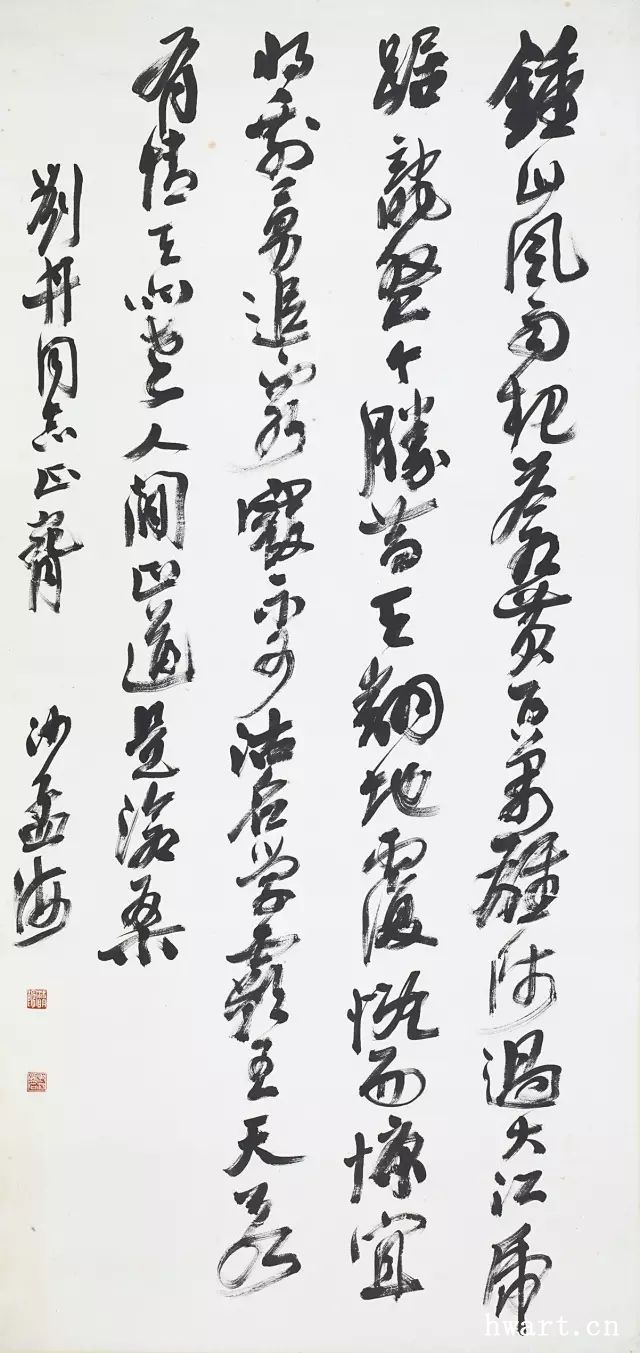 鍾山風雨起蒼黃百萬雄師過大江虎
踞龍盤今勝昔天翻地覆慨而慷宜
將剩勇追窮寇不可沽名学霸王天若
有情天亦老人間正道是滄桑
劉丹同志正 沙孟海
hwart.cn